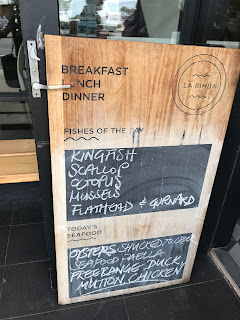 BREAKFAST
LUNCH
DINNER
LA BIMBA
FISHES OF THE DAY
KINGFISH
SCALLOP
OCTOPUS
MUSSELS
FLATHEAD & GURNARD
TODAY'S
SEAFOOD
OYSTERS SHUCKED TO ORDER
SEAFOOD PAELLA
FREERANGE DUCK
MUTTON CHICKEN